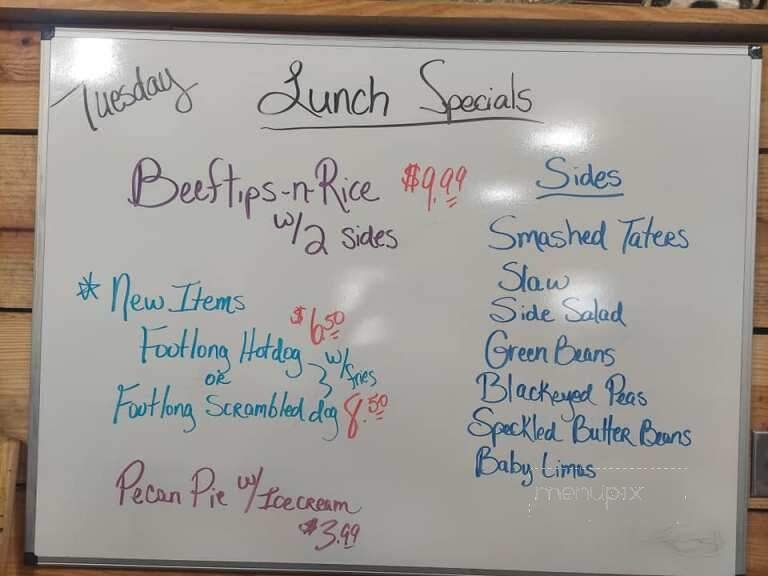 Tuesday
Lunch Specials
Beeftips-n-Rice $9.99
w/2 sides
* New Items
$6.50
Footlong Hotdog
or
w/fries
Footlong Scrambled dog 8.50
Pecan Pie w/Icecream
$3.99
Sides
Smashed Taters
Slaw
Side Salad
Green Beans
Blackeyed Peas
Speckled Butter Beans
Baby Limas
menupix